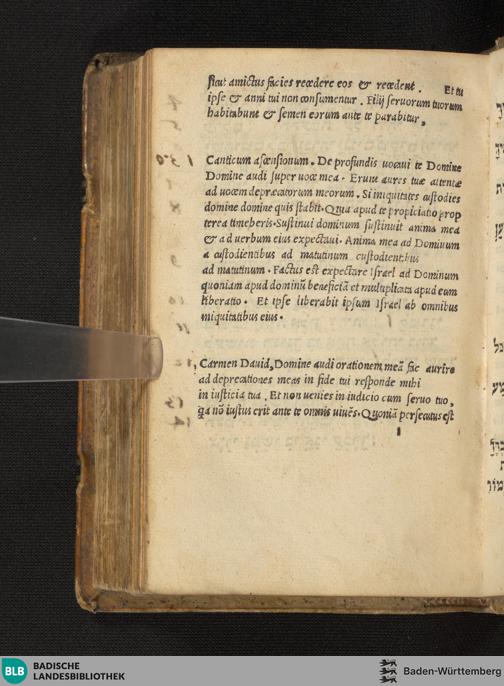 sicut amictus facies recedere eos & recedent. Et tu
ipse & anni tui non consumentur. Filij seruorum tuorum
habitabunt & semen eorum ante te parabitur,
130 Canticum ascensionum. De profundis uocaui te Domine
Domine audi super uoce mea. Erunt aures tuæ attentæ
ad uocem deprecatorum meorum. Si iniquitates custodies
domine domine quis stabit. Quia apud te propiciatio prop
terea timeberis. Sustinui dominum sustinuit anima mea
& ad uerbum eius expectaui. Anima mea ad Dominum
a custodientibus ad matutinum custodientibus
ad matutinum. Factus est expectare Israel ad Dominum
quoniam apud dominũ beneficiã et multiplicata apud eum
liberatio. Et ipse liberabit ipsum Israel ab omnibus
iniquitatibus eius.
Carmen Dauid, Domine audi orationem meã fac aurire
ad deprecationes meas in fide tui responde mihi
in iusticia tua. Et non uenies in iudicio cum seruo tuo,
qa nõ iustus erit ante te omnis uiuẽs. Quoniã persecutus est
BLB BADISCHE
LANDESBIBLIOTHEK
Baden-Württemberg